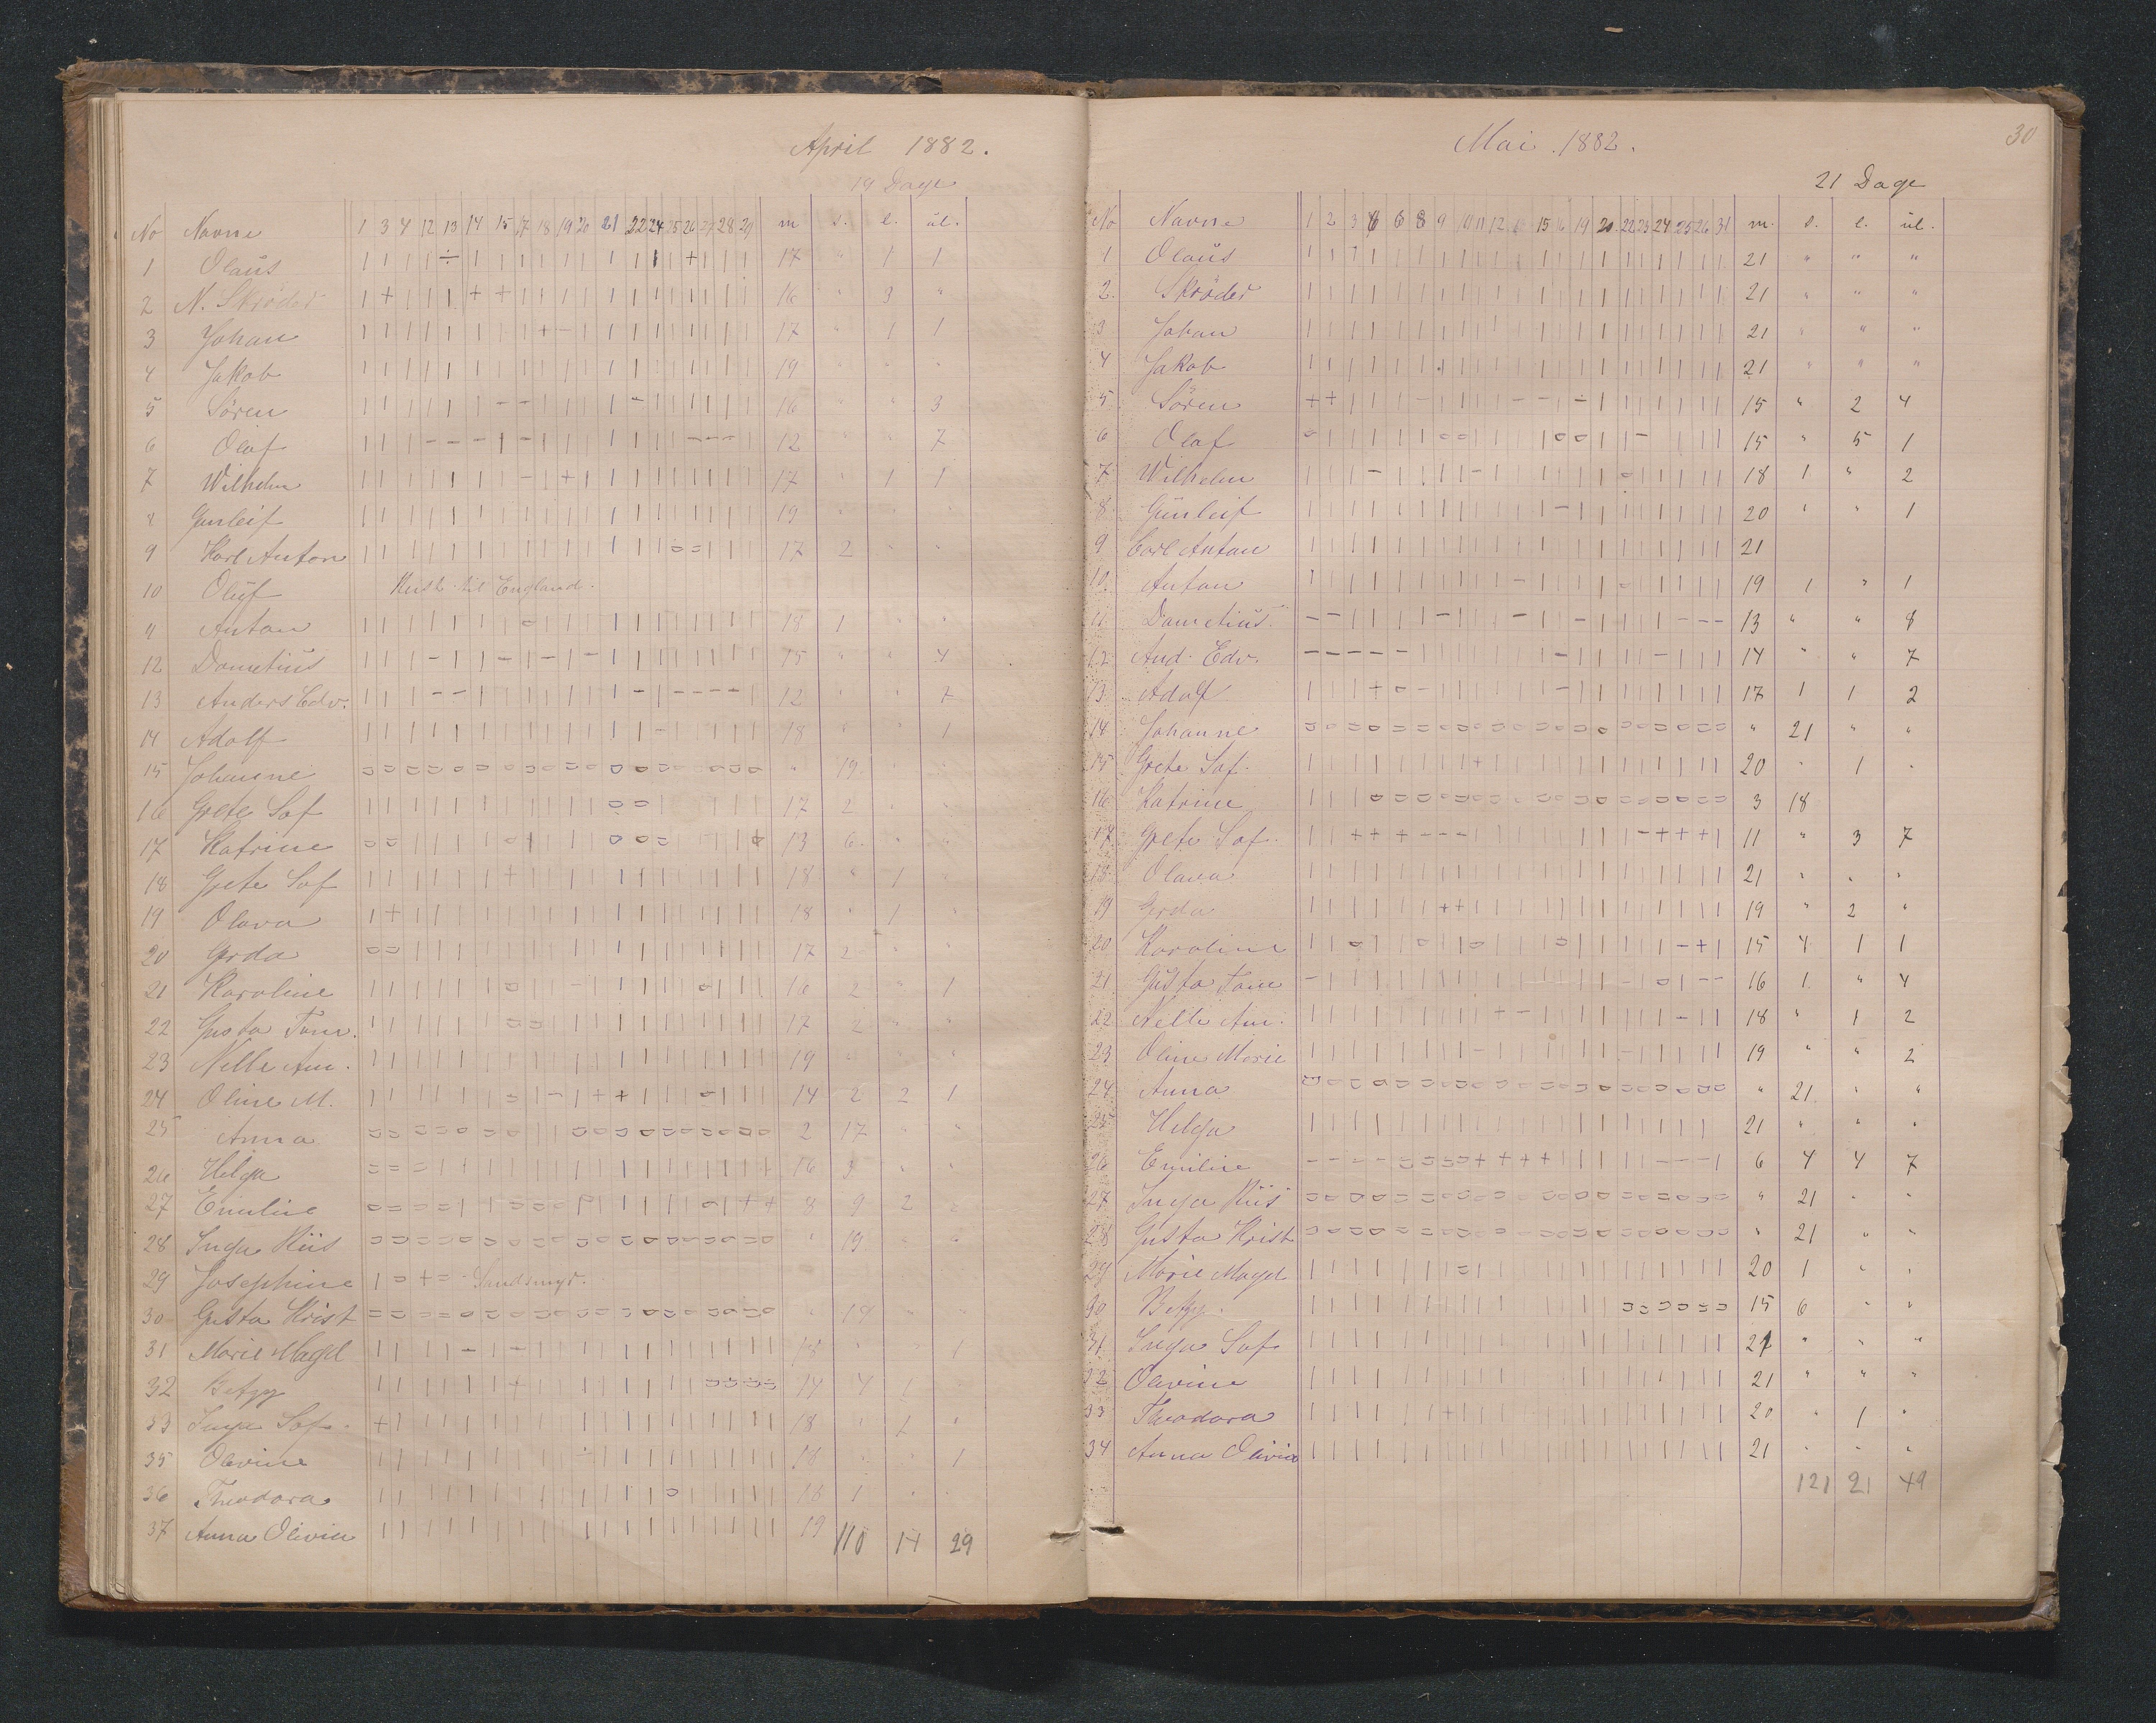 April 1882.
19 Dage
No Navne 1 3 4 12 13 14 15 17 18 19 20 21 22 24 25 26 27 28 29 m s. l. ul.
1 Olaüs 17 " 1 1
2 N. Skröder 16 " 3 "
3 Johan 17 " 1 1
4 Jakob 19 " " "
5 Sören 16 " " 3
6 Olaf 12 " " 7
7 Wilhelm 17 " 1 1
8 Gunleif 19 " " "
9 Karl Anton 17 2 " "
10 Olüf til England.
11 Anton 18 1 " "
12 Dometius 15 " " 4
13 Anders Edv. 12 " " 7
14 Adolf 18 " " 1
15 Johanne " 19 " "
16 Grete Sof 17 2 " "
17 Katrine 13 6 " "
18 Grete Sof 18 " 1 "
19 Olava 18 " 1 "
20 Gerda 17 2 " "
21 Karoline 16 2 " 1
22 Gusta Tom. 17 2 " "
23 Nelle Am. 19 " " "
24 Oline M. 14 2 2 1
25 Anna 2 17 " "
26 Helga 16 3 " "
27 Emilie 8 9 2 "
28 Inga Riis " 19 " "
29 Josephine
30 Gusta Krist " 19 " "
31 Marie Magd 18 " " 1
32 Betzy 14 4 1
33 Inga Sof. 18 " 1 "
35 Olevine 18 " " 1
36 Theodora 18 1 " "
37 Anna Olivia 19
110 14 29
30
Mai 1882.
21 Dage
No Navne 1 2 3 4 6 8 9 10 11 12 13 15 16 19 20 22 23 24 25 26 31 m. s. l. ul.
1 Olaüs 21 " " "
2. Skröder 21 " " "
3 Johan 21 " " "
4 Jakob 21 " " "
5 Sören 15 " 2 4
6 Olaf 15 " 5 1
7 Wilhelm 18 1 " 2
8 Günleif 20 " " 1
9 Carl Anton 21
10. Anton 19 1 " 1
11 Dometius 13 " " 8
12 And. Edv. 14 " " 7
13 Adolf 17 1 1 2
14 Johanne " 21 " "
15 Grete Sof. 20 " 1 "
16 Katrine 3 18
17 Grete Sof. 11 " 3 7
18 Olava 21 " " "
19 Gerda 19 " 2 "
20 Karoline 15 4 1 1
21 Gusta Tom 16 1 " 4
22 Nelle Am. 18 " 1 2
23 Oline Marie 19 " " 2
24 Anna " 21 " "
25 Helga 21 " " "
26 Emilie 6 4 4 7
27 Inga Riis " 21 " "
28 Gusta Krist " 21 " "
29 Marie Magd 20 1 " "
30 Betzy. 15 6 " "
31 Inga Sof 21 " " "
32 Olevine 21 " " "
33 Theodora 20 " 1 "
34 Anna Olivia 21 " " "
121 21 49